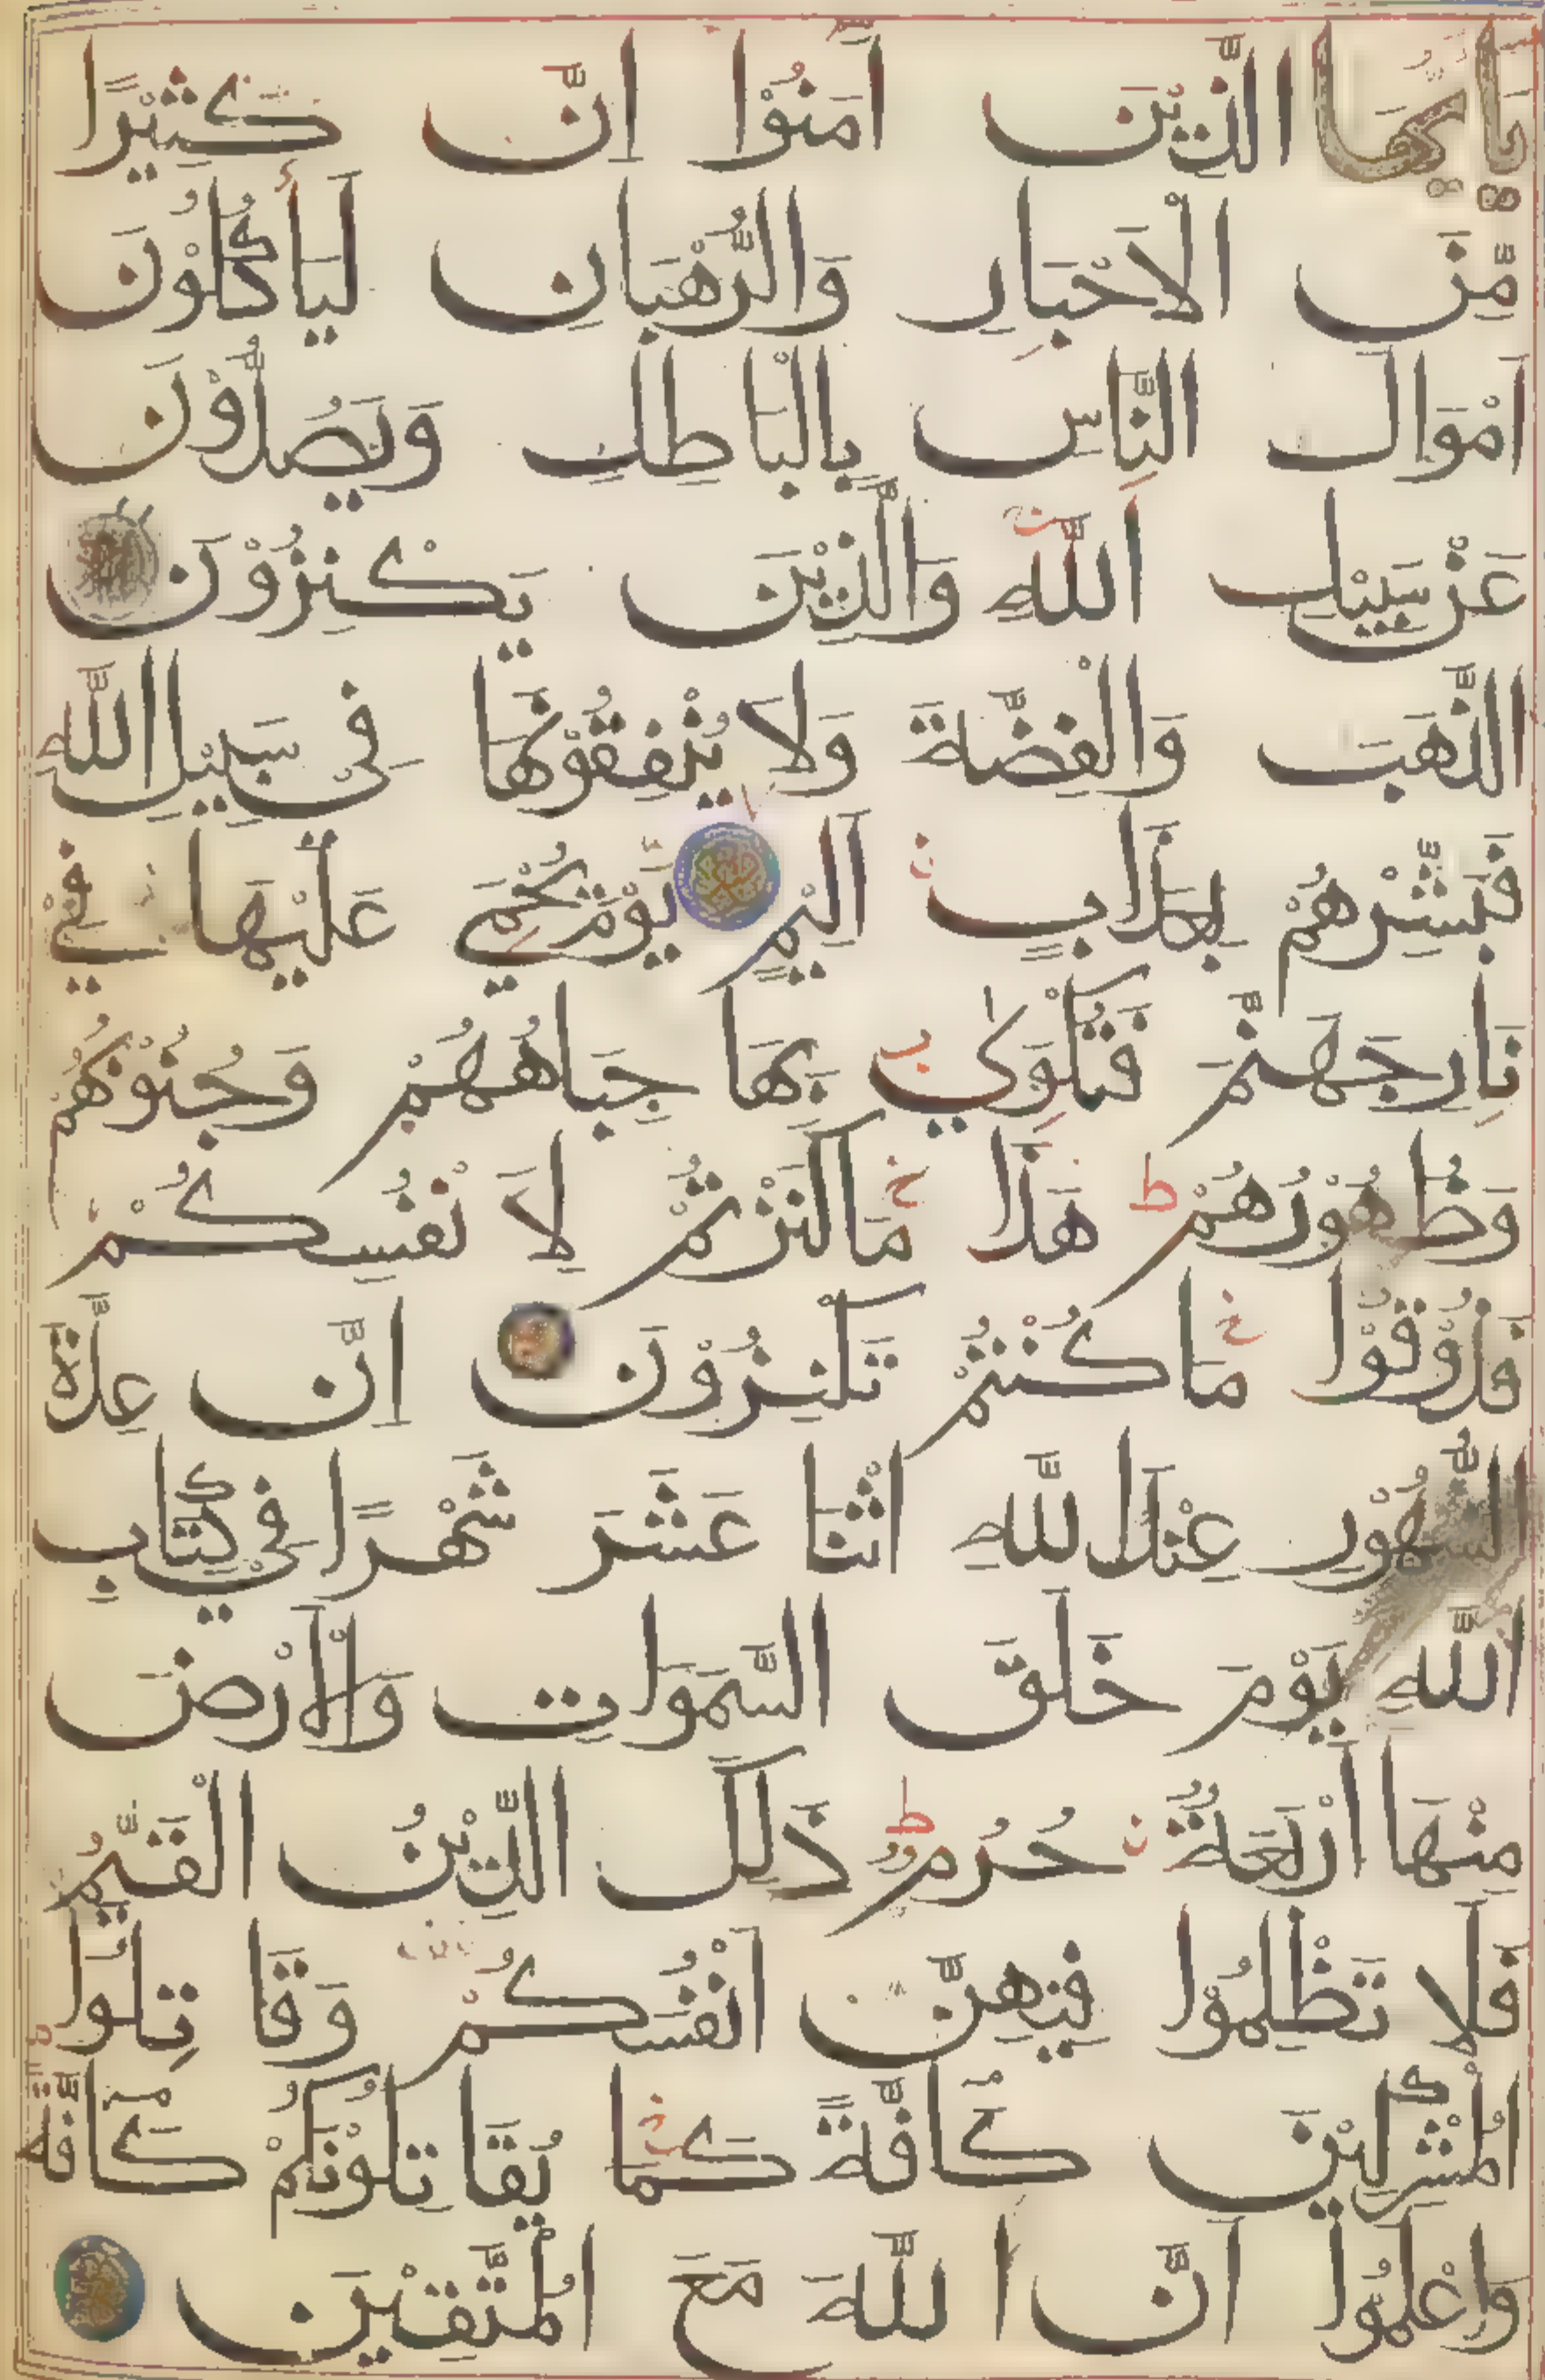 يَاأَيُّهَا الَّذِيْنَ اٰمَنُوْا اِنَّ كَثِيْرًا
مِّنَ الْاَحْبَارِ وَالرُّهْبَانِ لَيَأْكُلُوْنَ
اَمْوَالَ النَّاسِ بِالْبَاطِلِ وَيَصُدُّوْنَ
عَنْ سَبِيْلِ اللّٰهِ وَالَّذِيْنَ يَكْنِزُوْنَ
الذَّهَبَ وَالْفِضَّةَ وَلَا يُنْفِقُوْنَهَا فِيْ سَبِيْلِ اللّٰهِ
فَبَشِّرْهُمْ بِعَذَابٍ اَلِيْمٍ يَوْمَ يُحْمٰى عَلَيْهَا فِيْ
نَارِ جَهَنَّمَ فَتُكْوٰى بِهَا جِبَاهُهُمْ وَجُنُوْبُهُمْ
وَظُهُوْرُهُمْ ط هٰذَا مَا كَنَزْتُمْ لِاَنْفُسِكُمْ
فَذُوْقُوْا مَا كُنْتُمْ تَكْنِزُوْنَ اِنَّ عِدَّةَ
الشُّهُوْرِ عِنْدَ اللّٰهِ اثْنَا عَشَرَ شَهْرًا فِيْ كِتَابِ
اللّٰهِ يَوْمَ خَلَقَ السَّمٰوَاتِ وَالْاَرْضَ
مِنْهَا اَرْبَعَةٌ حُرُمٌ ط ذٰلِكَ الدِّيْنُ الْقَيِّمُ
فَلَا تَظْلِمُوْا فِيْهِنَّ اَنْفُسَكُمْ وَقَاتِلُوا
الْمُشْرِكِيْنَ كَافَّةً كَمَا يُقَاتِلُوْنَكُمْ كَافَّةً
وَاعْلَمُوْا اَنَّ اللّٰهَ مَعَ الْمُتَّقِيْنَ